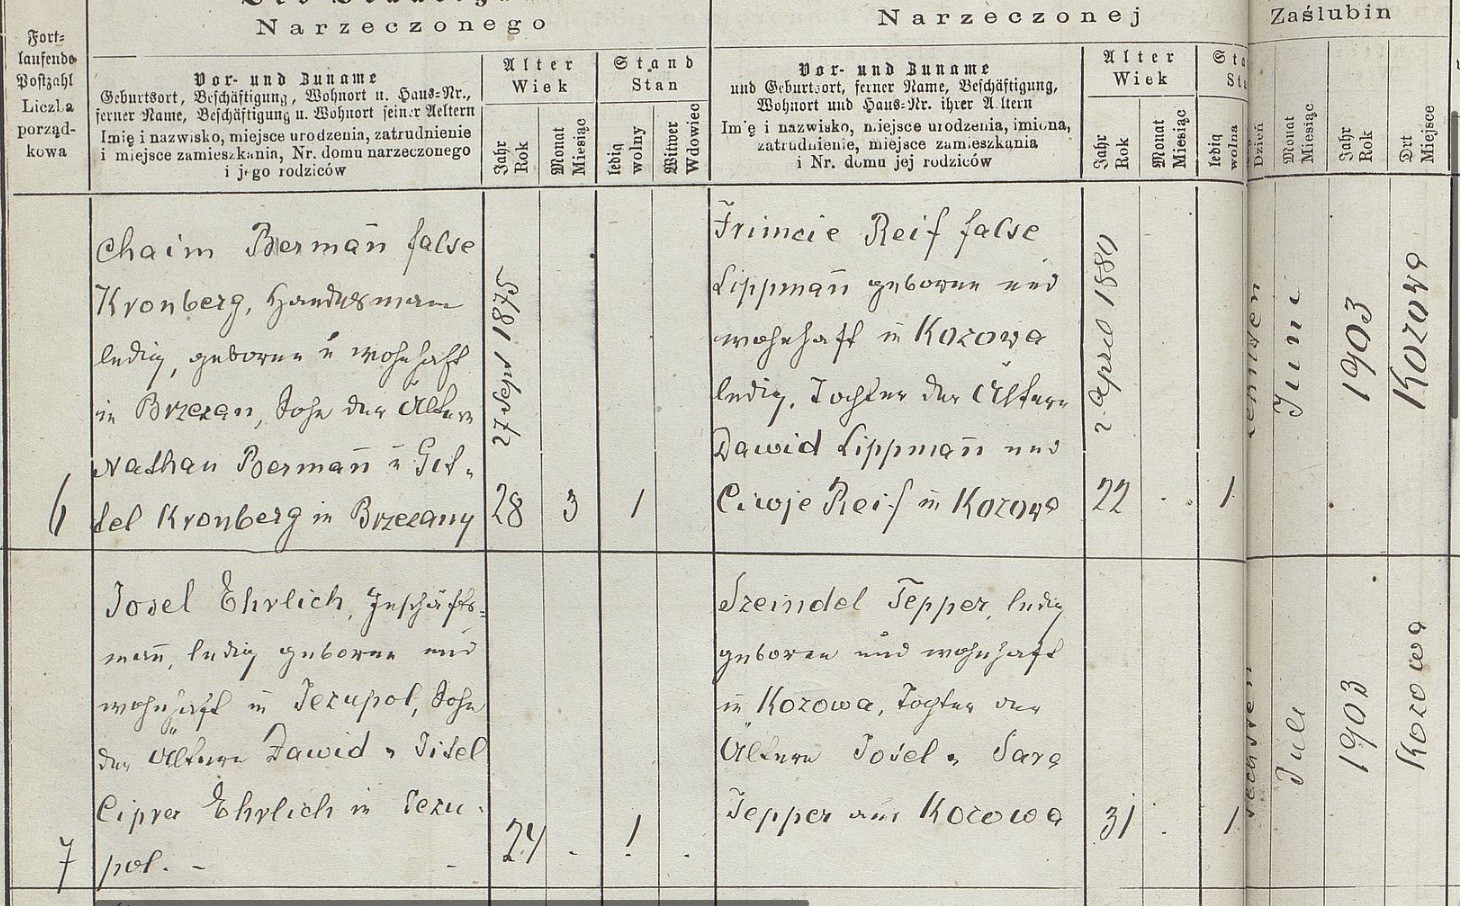 Narzeczonego
Narzeczonej
Zaślubin
Fort-
laufende
Postzahl
Liczba
porząd-
kowa
Vor- und Zuname
Geburtsort, Beschäftigung, Wohnort u. Haus-Nr.,
ferner Name, Beschäftigung u. Wohnort seiner Aeltern
Imię i nazwisko, miejsce urodzenia, zatrudnienie
i miejsce zamieszkania, Nr. domu narzeczonego
i jego rodziców
Alter
Wiek
Jahr
Rok
Monat
Miesiąc
Stand
Stan
ledig
wolny
Witwer
Wdowiec
Vor- und Zuname
und Geburtsort, ferner Name, Beschäftigung,
Wohnort und Haus-Nr. ihrer Aeltern
Imię i nazwisko, miejsce urodzenia, imiona,
zatrudnienie, miejsce zamieszkania
i Nr. domu jej rodziców
Alter
Wiek
Jahr
Rok
Monat
Miesiąc
ledig
wolna
Dzień
Monat
Miesiąc
Jahr
Rok
Ort
Miejsce
6
Chaim Bermañ false
Kronberg, Handelsmann
ledig, geboren u wohnhaft
in Brzezan, Sohn der Ältern
Nathan Bermañ u Git-
tel Kronberg in Brzezany
27 Sept 1875
28
3
1
Frimcie Reif false
Lippmañ geboren und
wohnhaft in Kozowa
ledig, Tochter der Ältern
Dawid Lippmañ und
Ciwje Reif in Kozowa
2 April 1880
22
1
Juni
1903
Kozowa
7
Josel Ehrlich, Geschäfts-
mañ, ledig geboren und
wohnhaft in Jezupol, Sohn
der Ältern Dawid u Titel
Ehrlich in Jezu-
pol. -
24
1
Szeindel Tepper, ledig
geboren und wohnhaft
in Kozowa, Tochter der
Ältern Josel u Sara
Tepper aus Kozowa
31
1
sechsten
Juli
1903
Kozowa